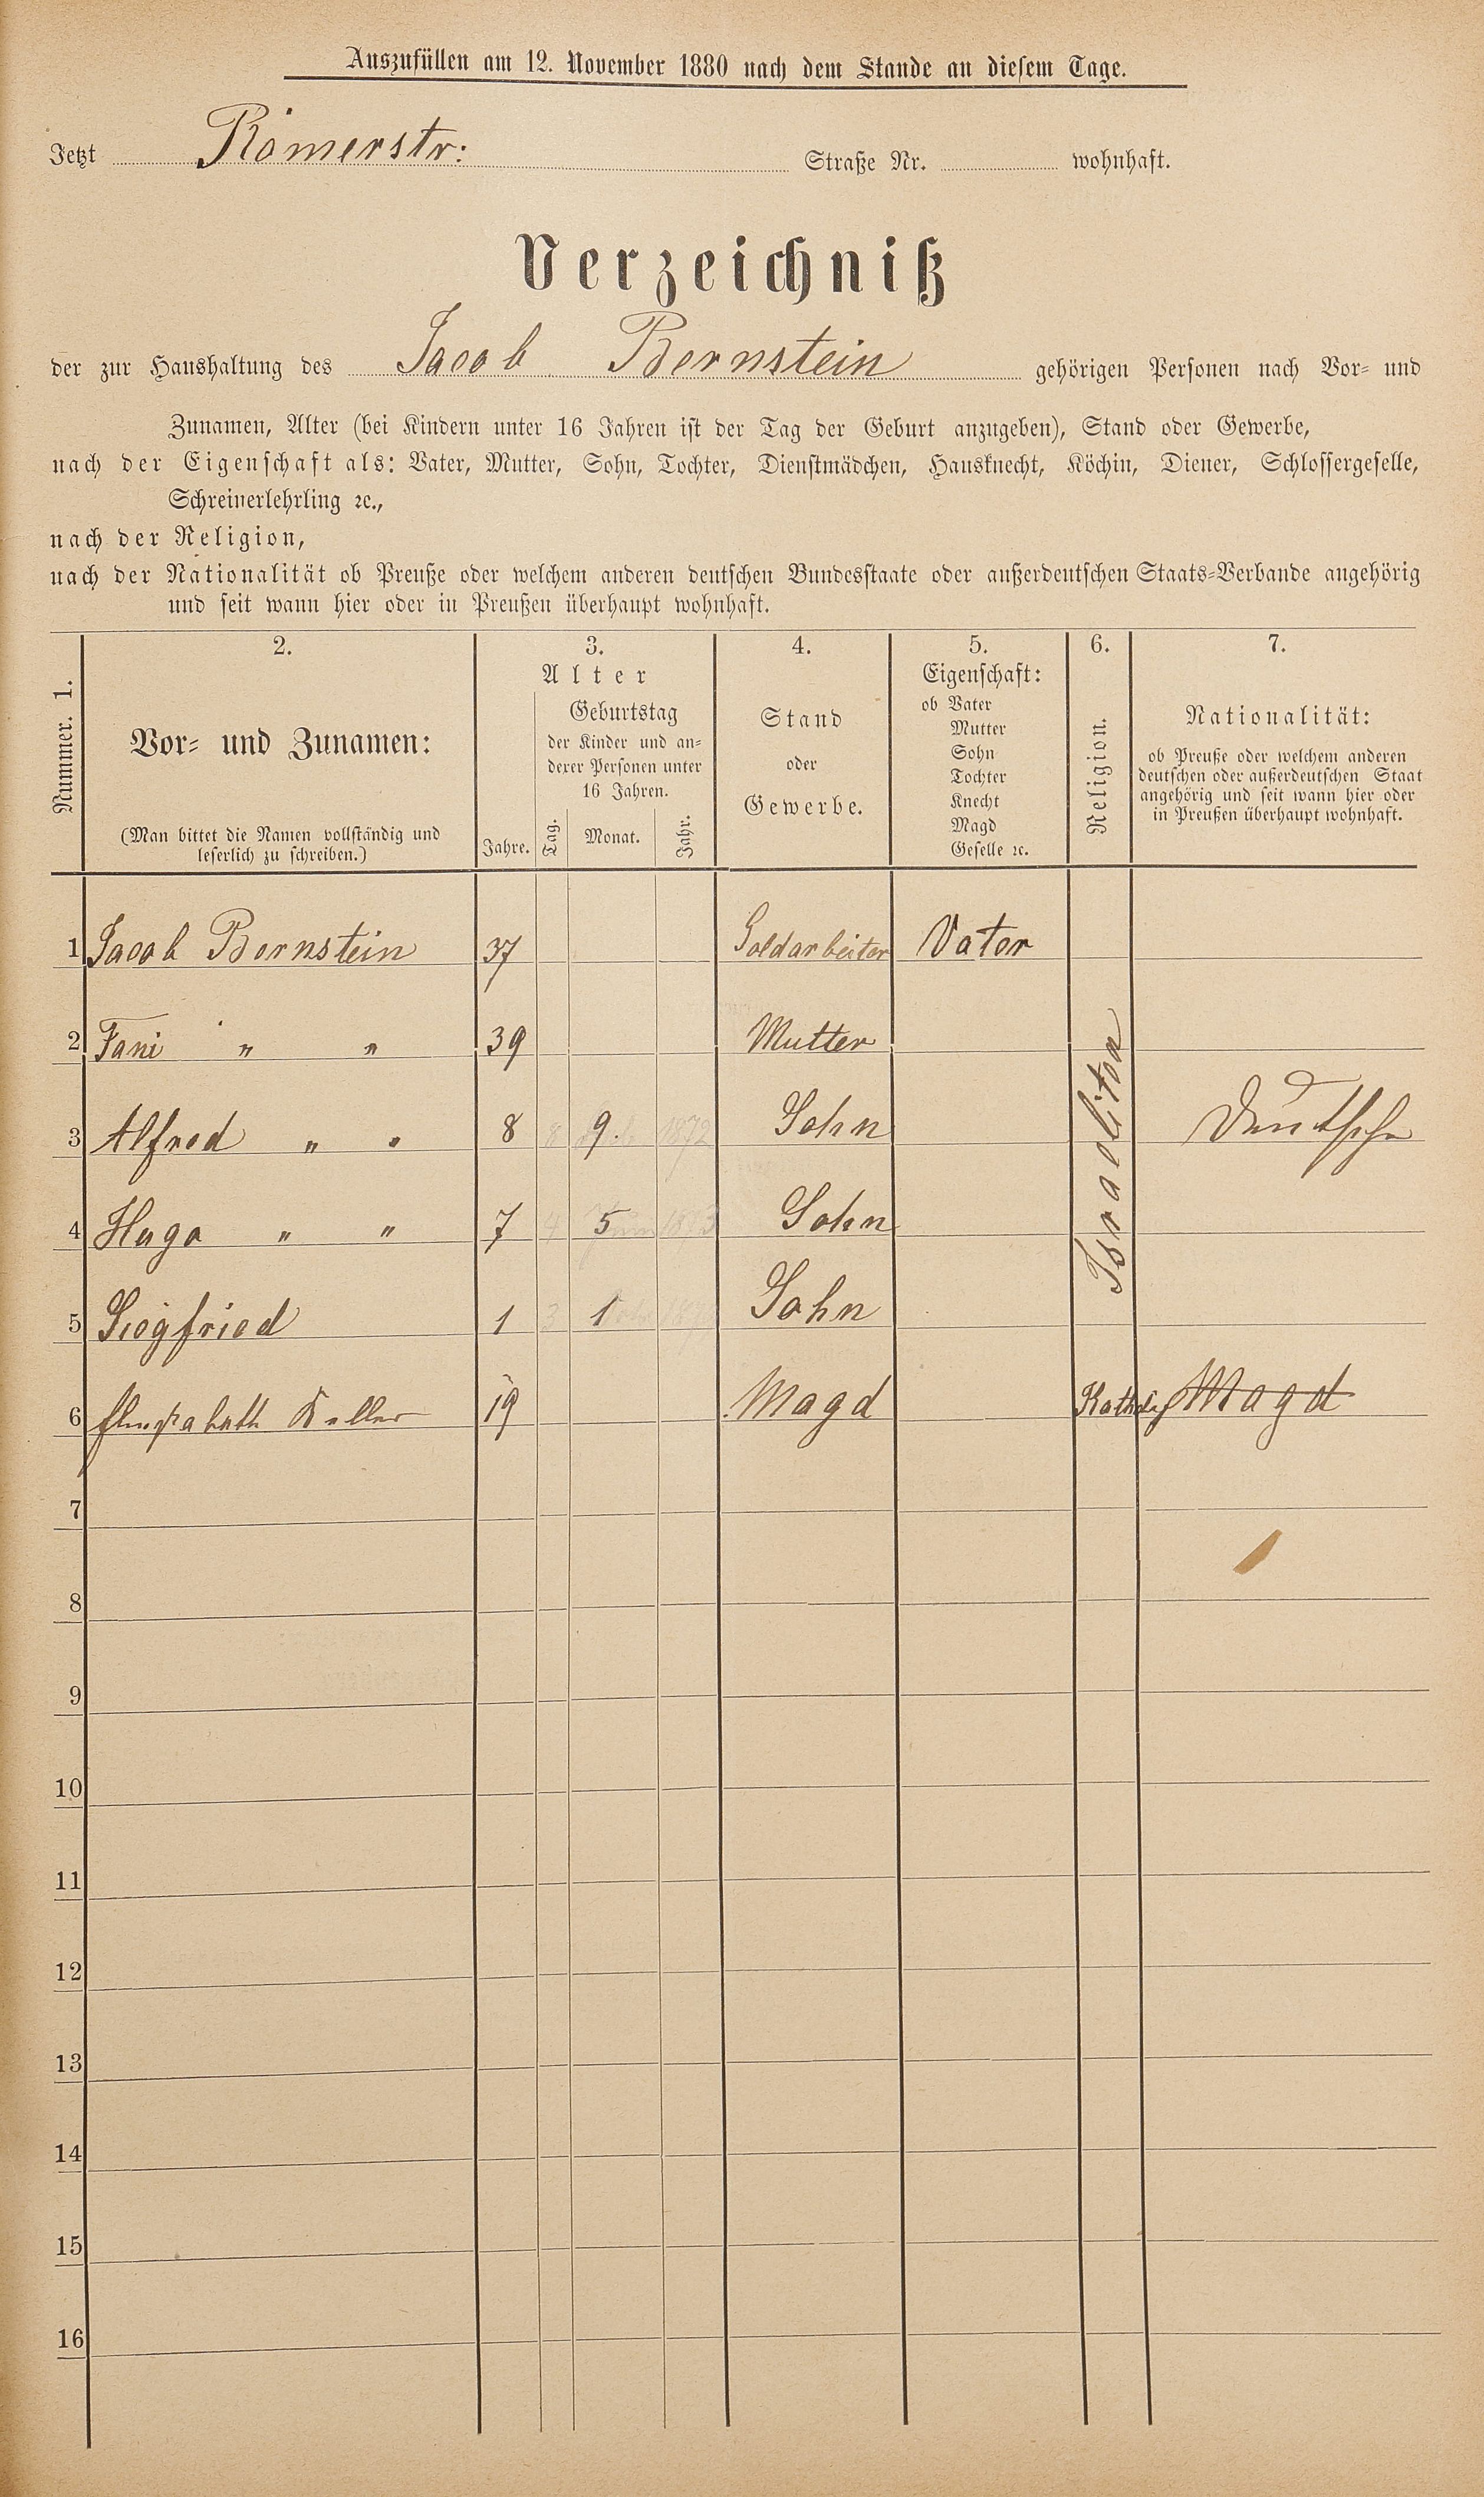 Auszufüllen am 12. November 1880 nach dem Stande an diesem Tage.
Jetzt Römerstr: Straße Nr. wohnhaft.
Verzeichniß
der zur Haushaltung des Jacob Bernstein gehörigen Personen nach Vor- und
Zunamen, Alter (bei Kindern unter 16 Jahren ist der Tag der Geburt anzugeben), Stand oder Gewerbe,
nach der Eigenschaft als: Vater, Mutter, Sohn, Tochter, Dienstmädchen, Hausknecht, Köchin, Diener, Schlossergeselle,
Schreinerlehrling ꝛc.,
nach der Religion,
nach der Nationalität ob Preuße oder welchem anderen deutschen Bundesstaate oder außerdeutschen Staats-Verbande angehörig
und seit wann hier oder in Preußen überhaupt wohnhaft.
Nummer. 1.
2.
Vor- und Zunamen:
(Man bittet die Namen vollständig und
leserlich zu schreiben.)
3.
Alter
Jahre.
Geburtstag
der Kinder und an-
derer Personen unter
16 Jahren.
Tag. Monat. Jahr.
4.
Stand
oder
Gewerbe.
5.
Eigenschaft:
ob Vater
Mutter
Sohn
Tochter
Knecht
Magd
Geselle ꝛc.
6.
Religion.
7.
Nationalität:
ob Preuße oder welchem anderen
deutschen oder außerdeutschen Staat
angehörig und seit wann hier oder
in Preußen überhaupt wohnhaft.
1 Jacob Bernstein 37 Goldarbeiter Vater
2 Fani " " 39 Mutter
3 Alfred " " 8 8 9. 1872 Sohn Deutsche
4 Hugo " " 7 4 5 1873 Sohn
Israeliten
5 Siegfried 1 3 1 Sohn
6 Keller 19 Magd Kathol. Magd
7
8
9
10
11
12
13
14
15
16